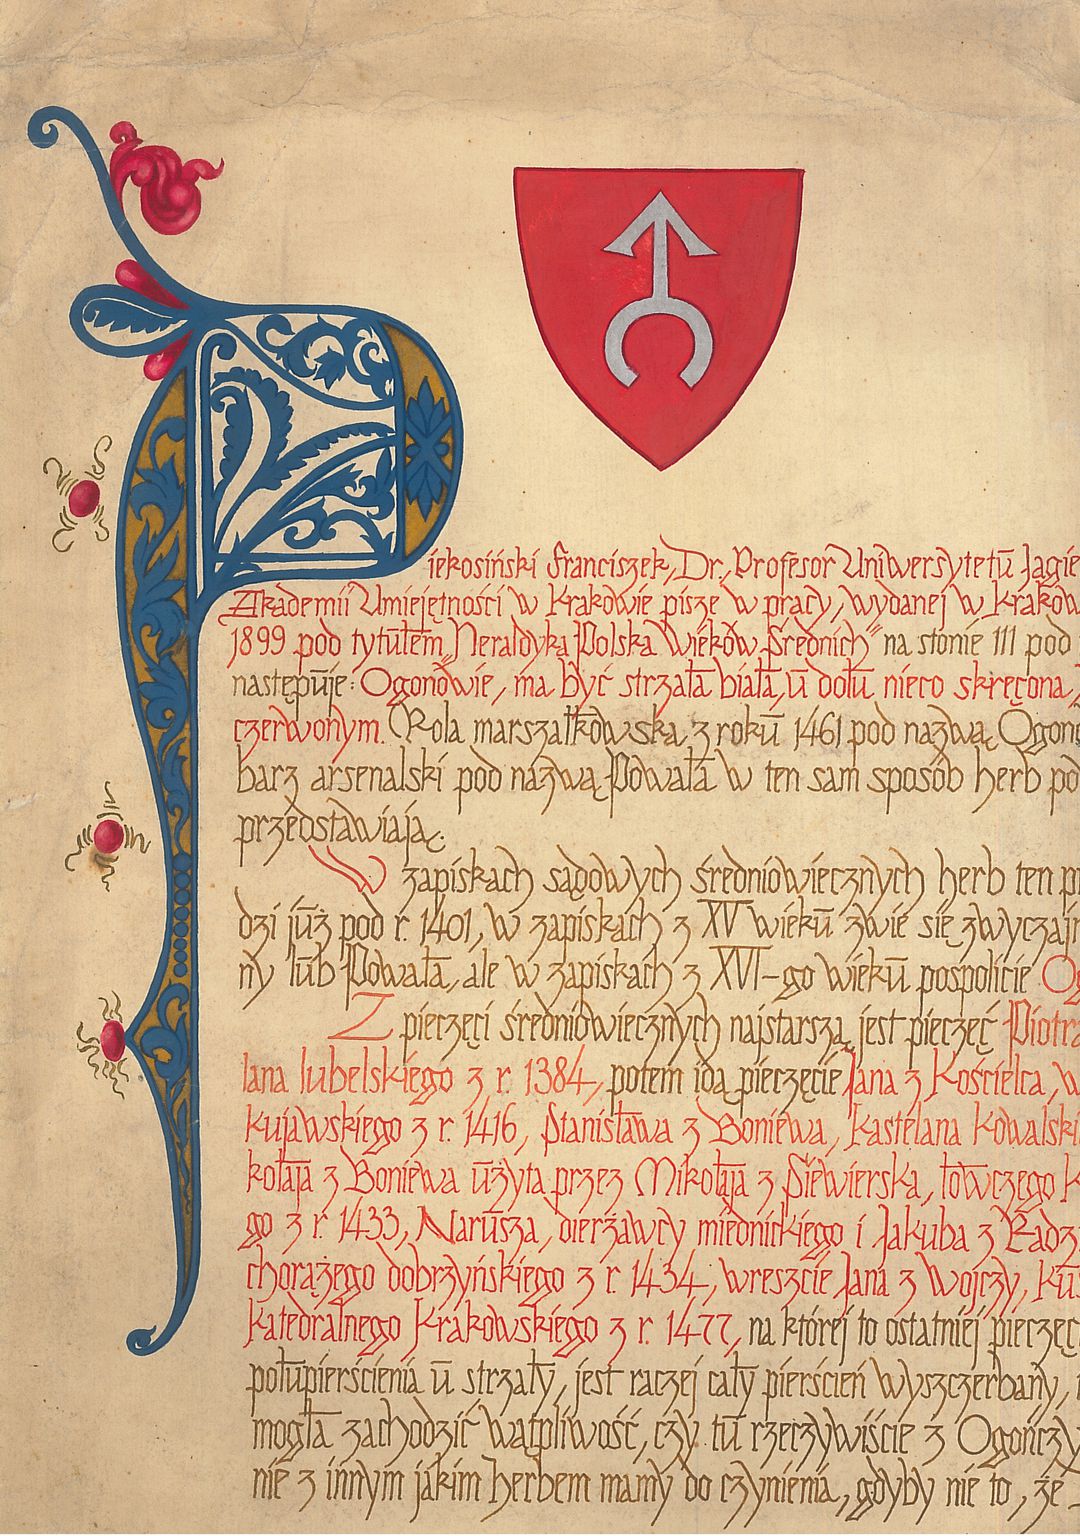 Piekosiński Franciszek, Dr., Profesor Uniwersytetu Jagie
Akademii Umiejętności w Krakowie pisze w pracy, wydanej w Kraków
1899 pod tytułem „Heraldyka Polska Wieków Średnich" na stonie 111 pod
następuje: Ogonowie, ma być strzała biała, u dołu nieco skręcona,
czerwonym. Rola marszałkowska z roku 1461 pod nazwą Ogoń
barz arsenalski pod nazwą Powała w ten sam sposób herb po
przedstawiają.
W zapiskach sądowych średniowiecznych herb ten p
dzi już pod r. 1401, w zapiskach z XV wieku zwie się zwyczajn
ny lub Powała, ale w zapiskach z XVI-go wieku pospolicie Og
Z pieczęci średniowiecznych najstarszą jest pieczęć Piotra
lana lubelskiego z r. 1384, potem idą pieczęcie Jana z Kościelca, w
kujawskiego z r. 1416, Stanisława z Boniewa, Kastelana Kowalski
kołaja z Boniewa użyta przez Mikołaja z Siewierska, łowczego K
go z r. 1433, Narusza, dierżawcy miednickiego i Jakuba z Radz
chorążego dobrzyńskiego z r. 1434, wreszcie Jana z Wojczy, Kus
katedralnego Krakowskiego z r. 1477, na której to ostatniej pieczęc
połupierścienia u strzały, jest raczej cały pierścień wyszczerbany,
mogła zachodzić wątpliwość, czy tu rzeczywiście z Ogończy
nie z innym jakim herbem mamy do czynienia, gdyby nie to, że